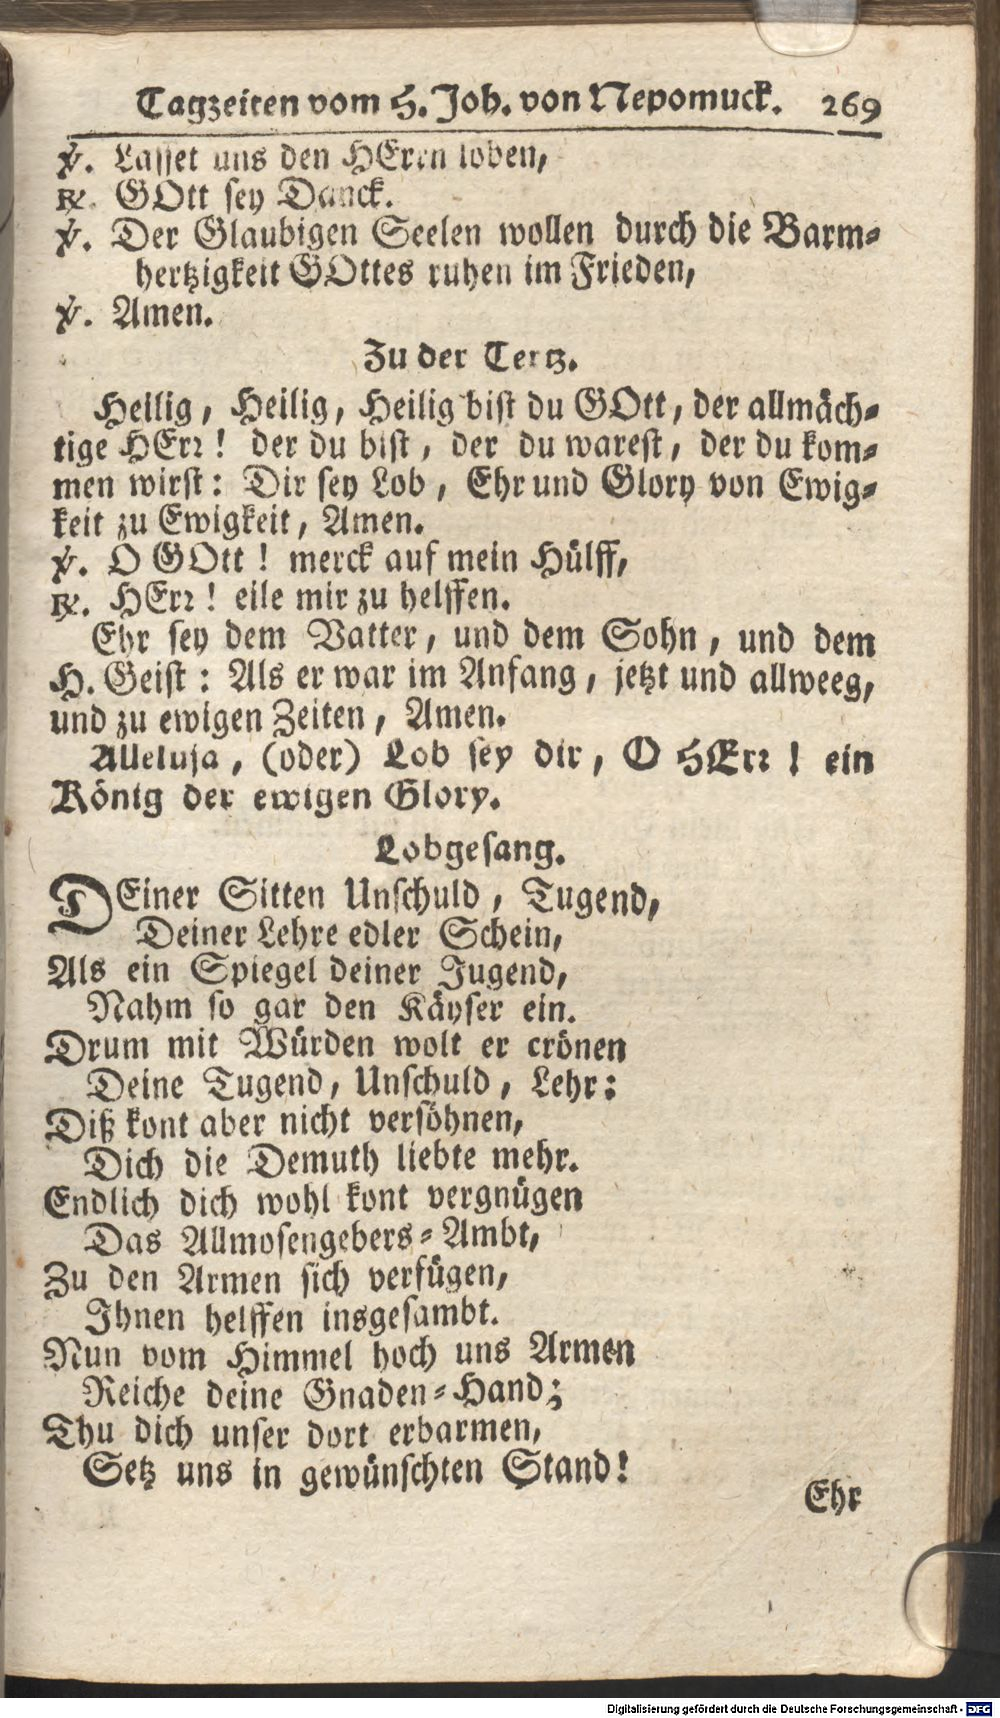 Tagzeiten vom H. Joh. von Nepomuck. 269
℣. Lasset uns den HErrn loben,
℟. GOtt sey Danck.
℣. Der Glaubigen Seelen wollen durch die Barm-
hertzigkeit GOttes ruhen im Frieden,
℣. Amen.
Zu der Tertz.
Heilig, Heilig, Heilig bist du GOtt, der allmäch-
tige HErr! der du bist, der du warest, der du kom-
men wirst: Dir sey Lob, Ehr und Glory von Ewig-
keit zu Ewigkeit, Amen.
℣. O GOtt! merck auf mein Hülff,
℟. HErr! eile mir zu helffen.
Ehr sey dem Vatter, und dem Sohn, und dem
H. Geist: Als er war im Anfang, jetzt und allweeg,
und zu ewigen Zeiten, Amen.
Alleluja, (oder) Lob sey dir, O HErr! ein
König der ewigen Glory.
Lobgesang.
DEiner Sitten Unschuld, Tugend,
Deiner Lehre edler Schein,
Als ein Spiegel deiner Jugend,
Nahm so gar den Käyser ein.
Drum mit Würden wolt er crönen
Deine Tugend, Unschuld, Lehr:
Diß kont aber nicht versöhnen,
Dich die Demuth liebte mehr.
Endlich dich wohl kont vergnügen
Das Allmosengebers-Ambt,
Zu den Armen sich verfügen,
Ihnen helffen insgesambt.
Nun vom Himmel hoch uns Armen
Reiche deine Gnaden-Hand;
Thu dich unser dort erbarmen,
Setz uns in gewünschten Stand!
Ehr
Digitalisierung gefördert durch die Deutsche Forschungsgemeinschaft - DFG